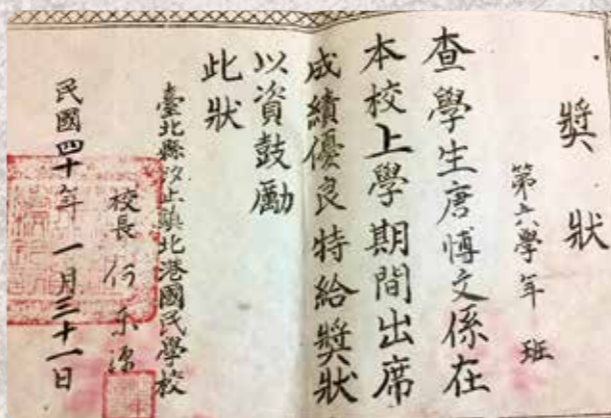 獎狀
第五六學年 班
查學生唐愽文係在
本校上學期間出席
成績優良特給獎狀
以資鼓勵
此狀
臺北縣汐止鎮北港國民學校
校長 何 源
民國四十年 一月三十一日